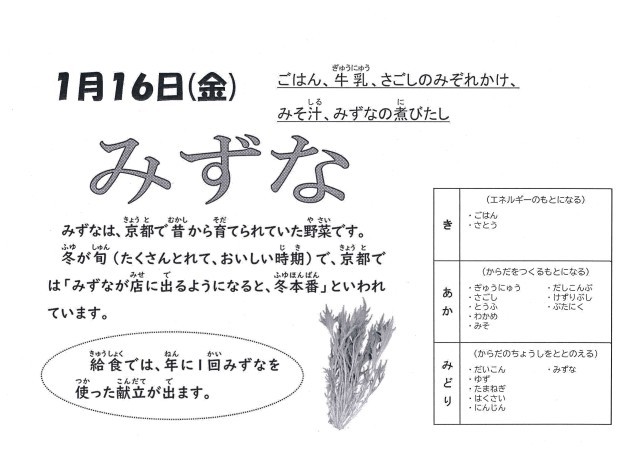 1月16日(金)
ごはん、牛乳、さごしのみぞれかけ、
みそ汁、みずなの煮びたし
みずな
みずなは、京都で昔から育てられていた野菜です。
冬が旬（たくさんとれて、おいしい時期）で、京都で
は「みずなが店に出るようになると、冬本番」といわれ
ています。
給食では、年に1回みずなを
使った献立が出ます。
き
（エネルギーのもとになる）
・ごはん
・さとう
あか
（からだをつくるもとになる）
・ぎゅうにゅう ・だしこんぶ
・さごし ・けずりぶし
・とうふ ・ぶたにく
・わかめ
・みそ
みどり
（からだのちょうしをととのえる）
・だいこん ・みずな
・ゆず
・たまねぎ
・はくさい
・にんじん